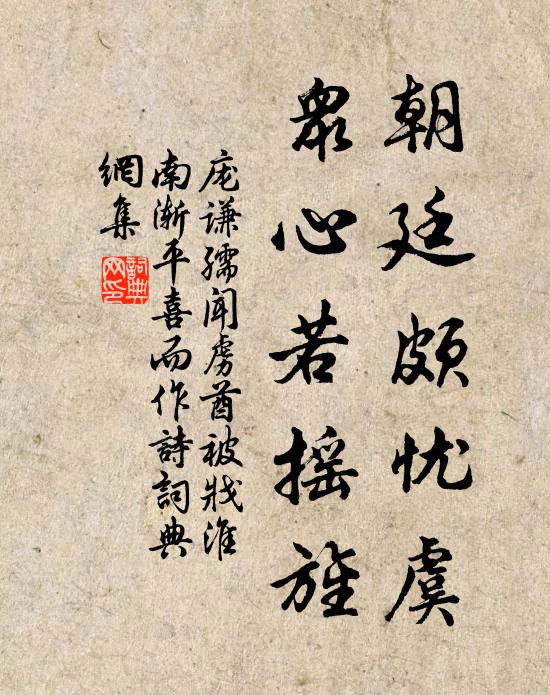 朝廷頗忧虞
衆心若摇旌
庞谦孺闻虏酋被戕淮
南渐平喜而作詩詞典
網集
詞典網印